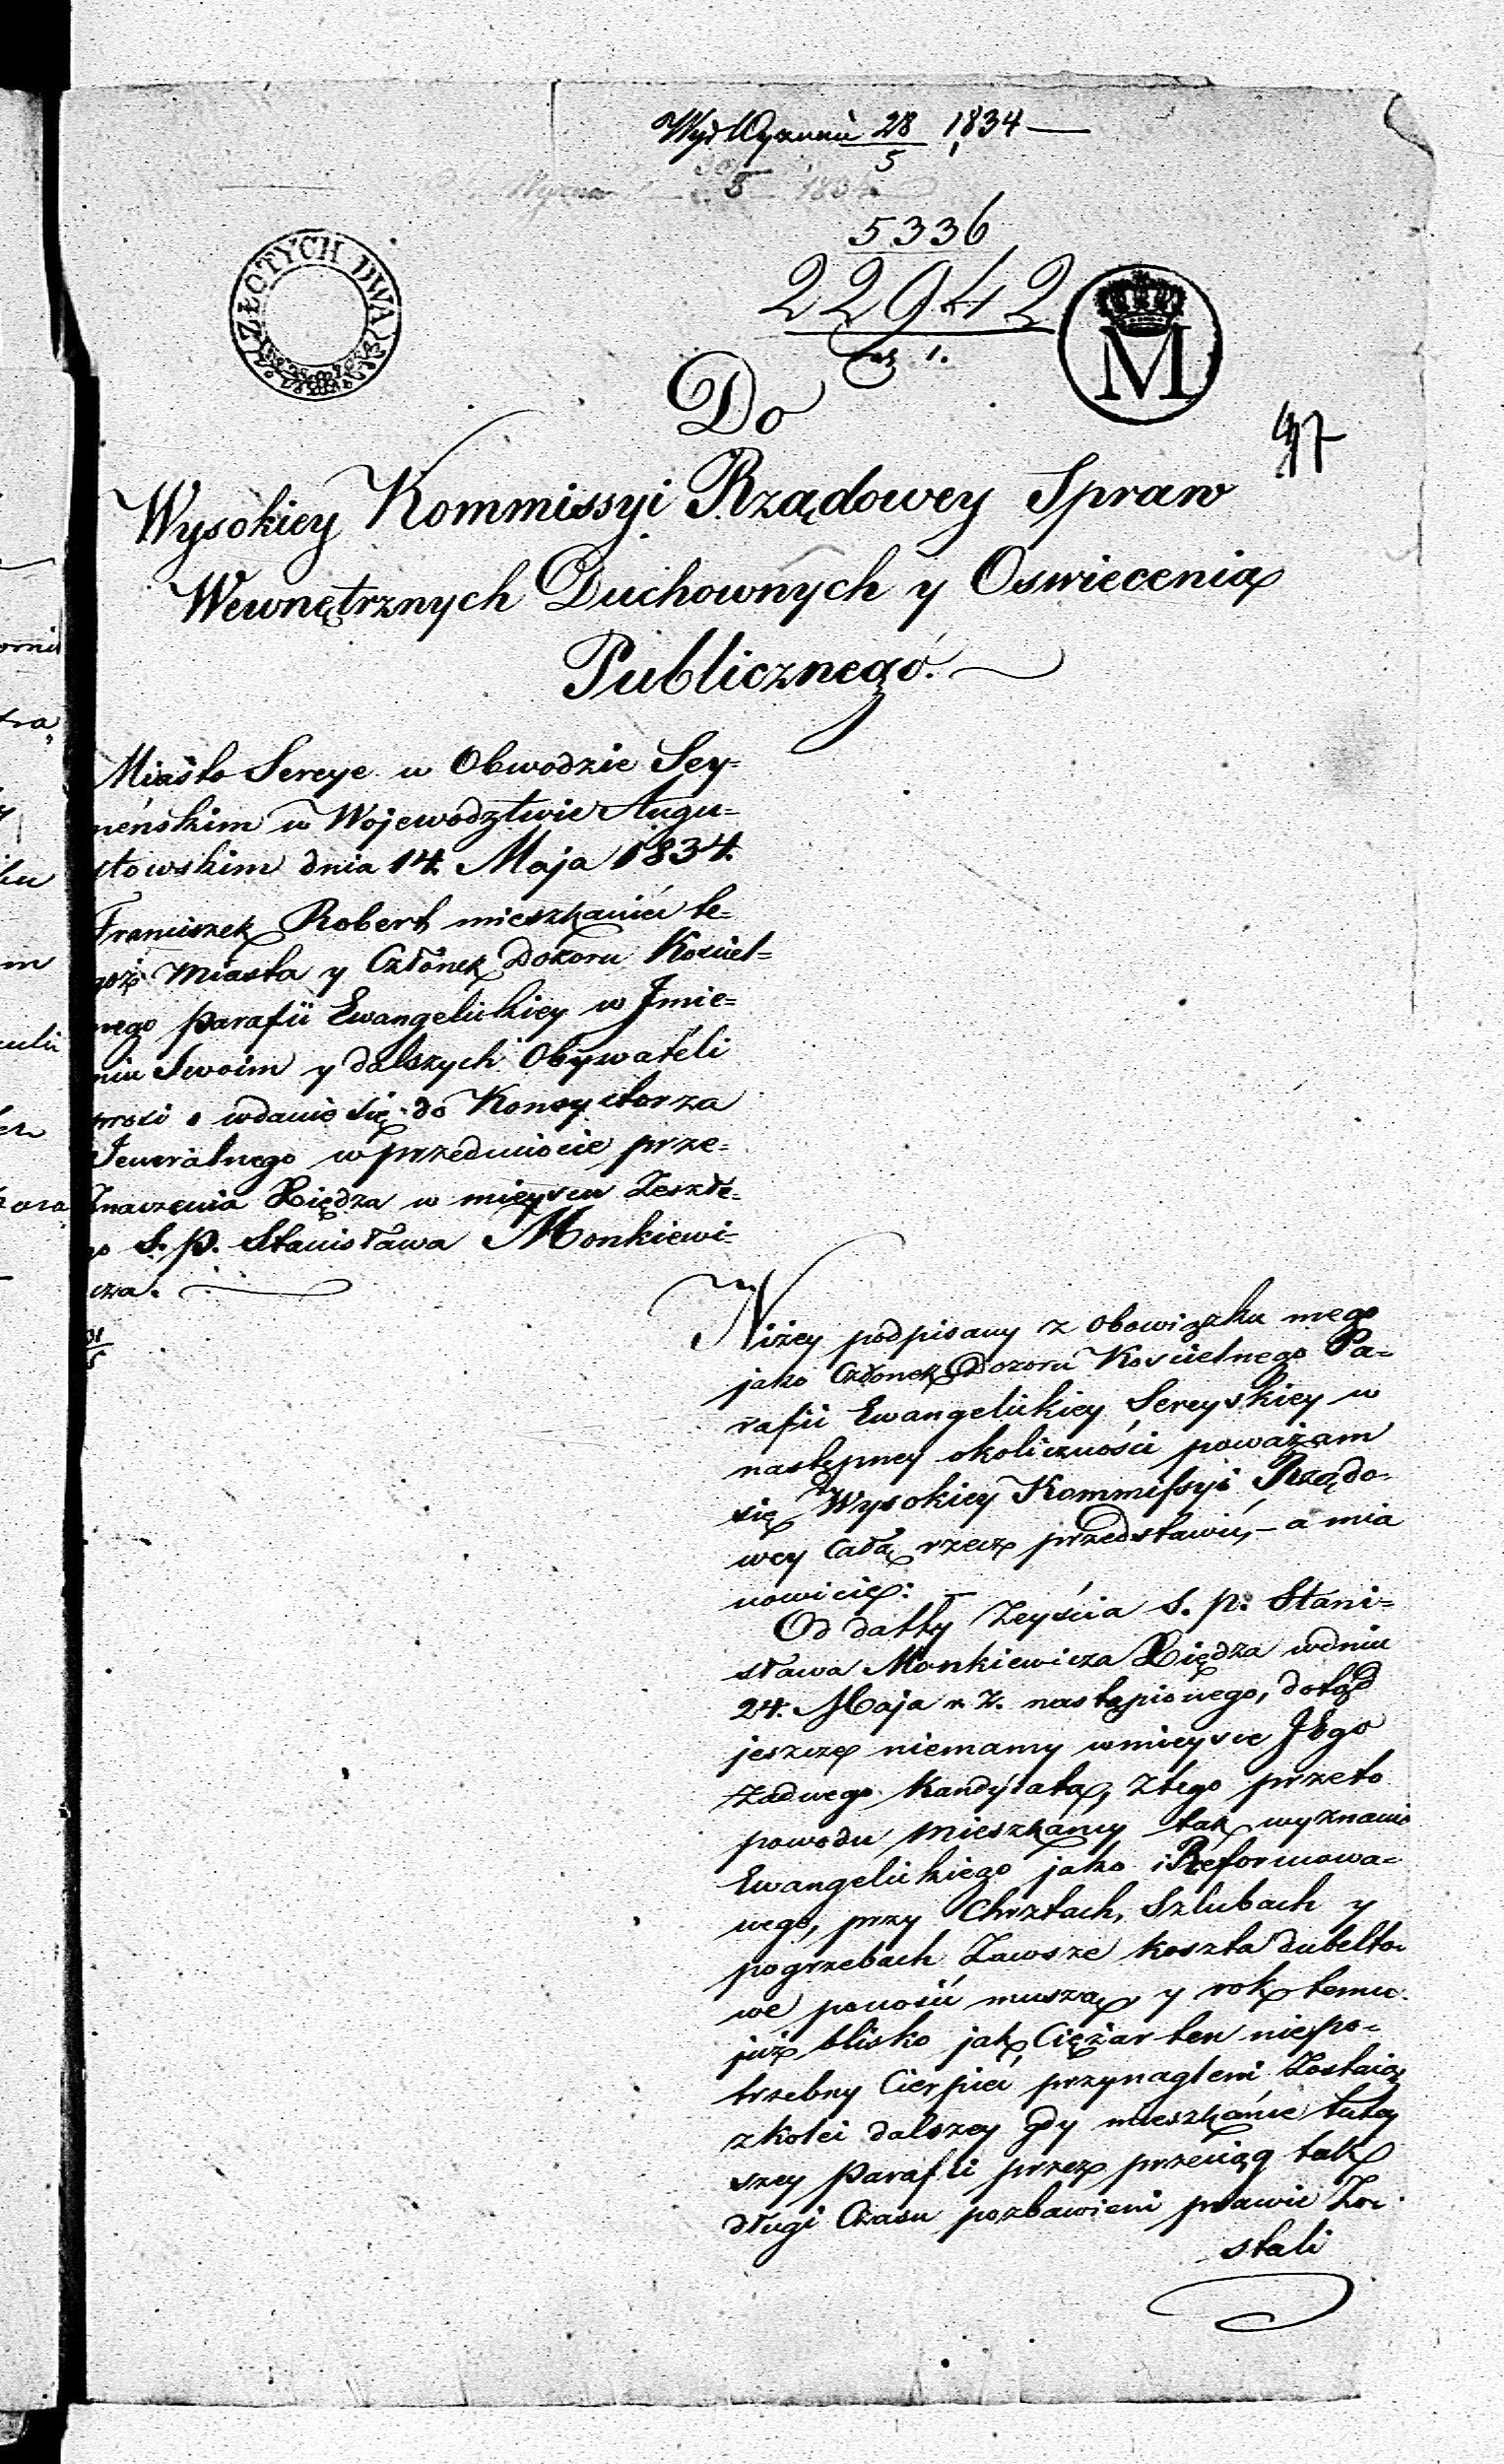 Wyd Wyznań 28/5 1834
5
5336
22942
1.
ZŁOTYCH DWA
M
47
Do
Wysokiey Kommissyi Rządowey Spraw
Wewnętrznych Duchownych y Oswiecenia
Publicznego.
Miasto Sereye w Obwodzie Sey-
neńskim w Wojewodztwie Augu-
stowskim dnia 14. Maja 1834.
Franciszek Robert mieszkaniec te-
goż Miasta y Członek Dozoru Kościel-
nego Parafii Ewangelickiey w Jmie-
niu Swoim y dalszych Obywateli
prosi o wdanie się do Konsystorza
Jeneralnego w przedmiocie prze-
znaczenia Xiędza w mieyscu Zeszłe-
go S. p. Stanisława Monkiewi-
cza.
31/5
Niżey podpisany z obowiązku mego
jako Członek Dozoru Koscielnego Pa-
rafii Ewangelickiey Sereyskiey w
następney okoliczności poważam
się Wysokiey Kommissyi Rządo-
wey Całą rzecz przedstawić, – a mia
nowicie: –
Od datty Zeyścia S. p. Stani-
sława Monkiewicza Xiędza w dniu
24. Maja r. z. nastąpionego, dotąd
jeszcze niemamy w mieysce JEgo
żadnego Kandydata, Z tego przeto
powodu Mieszkańcy tak wyznania
Ewangelickiego jako i Reformowa-
nego, przy Chrztach, Szlubach y
pogrzebach Zawsze koszta dubelto-
we ponosić muszą y rok temu
już blisko jak Ciężar ten niepo-
trzebny Cierpieć przynagleni Zostaią
z kolei dalszey gdy mieszkańce tutey
szey Parafii przez przeciąg tak
długi Czasu pozbawieni prawie Zo-
stali